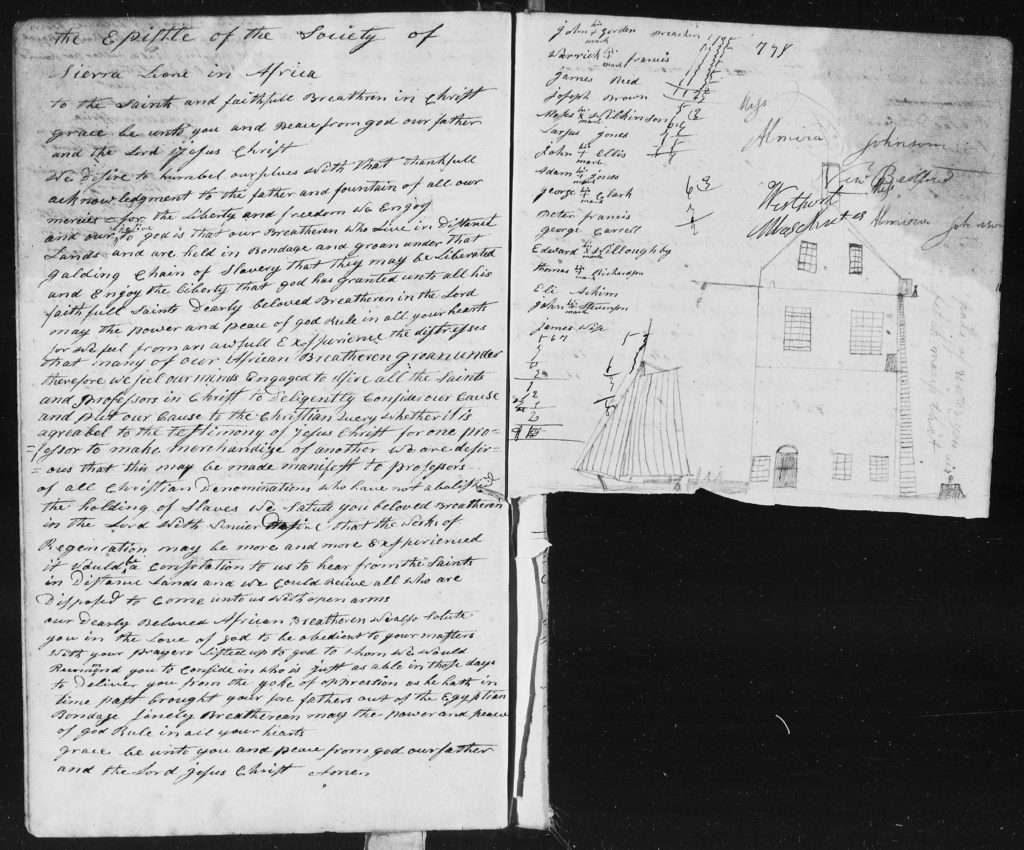 the Epistle of the Society of
Sierra Leone in Africa
to the Saints and faithfull Breathren in Christ
grace be unto you and Peace from god our father
and the Lord Jesus Christ
We desire to humbel ourselves With that thankfull
acknowledgment to the father and fountain of all our
mercies for the Liberty and freedom we Enjoy
and our desire to god is that our Breatheren who Live in Distant
Lands and are held in Bondage and groan under that
galding Chain of Slavery that they may be Liberated
and Enjoy the Liberty that God has granted unto all his
faithfull Saints Dearly beloved Breatheren in the Lord
may the Power and peace of god Rule in all your hearts
for we feel from an awfull Experience the distresses
that many of our African Breatheren groan under
therefore we feel our minds Engaged to desire all the Saints
and professors in Christ to Deligently Consider our Cause
and put our Cause to the Christian Query whether it is
agreabel to the testimony of Jesus Christ for one pro=
=fessor to make merchandize of another we are desir=
=ous that this may be made manifest to professors
of all Christian Denominations who have not abolished
the holding of Slaves We Salute you beloved Breatheren
in the Lord With Sincier desire that the works of
Regeneration may be more and more Experienced
it would be a Consolation to us to hear from the Saints
in Distance Lands and we Could Recive all who are
Disposed to Come unto us With open arms
our Dearly Beloved African Breatheren We also Salute
you in the Love of God to be obedient to your masters
With your prayers Lifted up to god to whom we would
Recommend you to Confide in who is Just as able in those days
to deliver you from the yoke of oppression as he hath in
time past brought your fore fathers out of the Egyptian
Bondage finely Breatherean may the Power and peace
of god Rule in all your hearts
grace be unto you and Peace from god our father
and the Lord Jesus Christ Amen
John his + mark Gorden preacher
Warrick his + mark francis
James Reid
Joseph Brown
Moses his x mark Wilkinson
Sarpus Jones
John his + mark Ellis
Adam his x mark Jones
george his x mark Clark
Peter francis
george Carrell
Edward his x mark Willoughby
thomas his x mark Richardson
Eli Achim
John his x mark Stevenson
James Wise
567
798
Miss
Almira Johnson
New Bedford
Westport
Miss
Almira Johnson